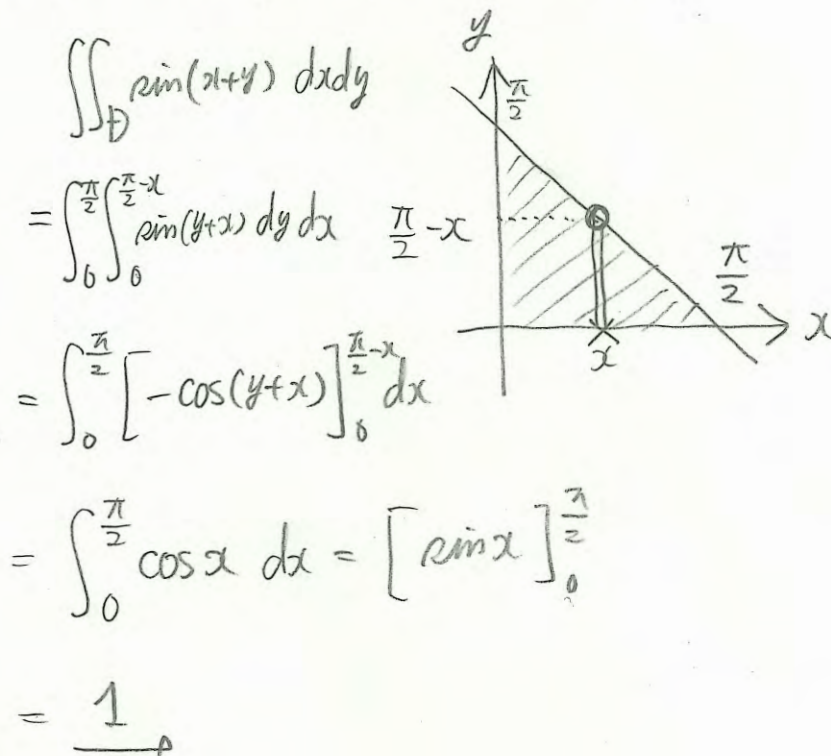 ∬_D sin(x+y) dxdy
= ∫_0^{π/2} ∫_0^{π/2-x} sin(y+x) dy dx
= ∫_0^{π/2} [-cos(y+x)]_0^{π/2-x} dx
= ∫_0^{π/2} cos x dx = [sin x]_0^{π/2}
= 1
y
π/2
π/2-x
π/2
x
x